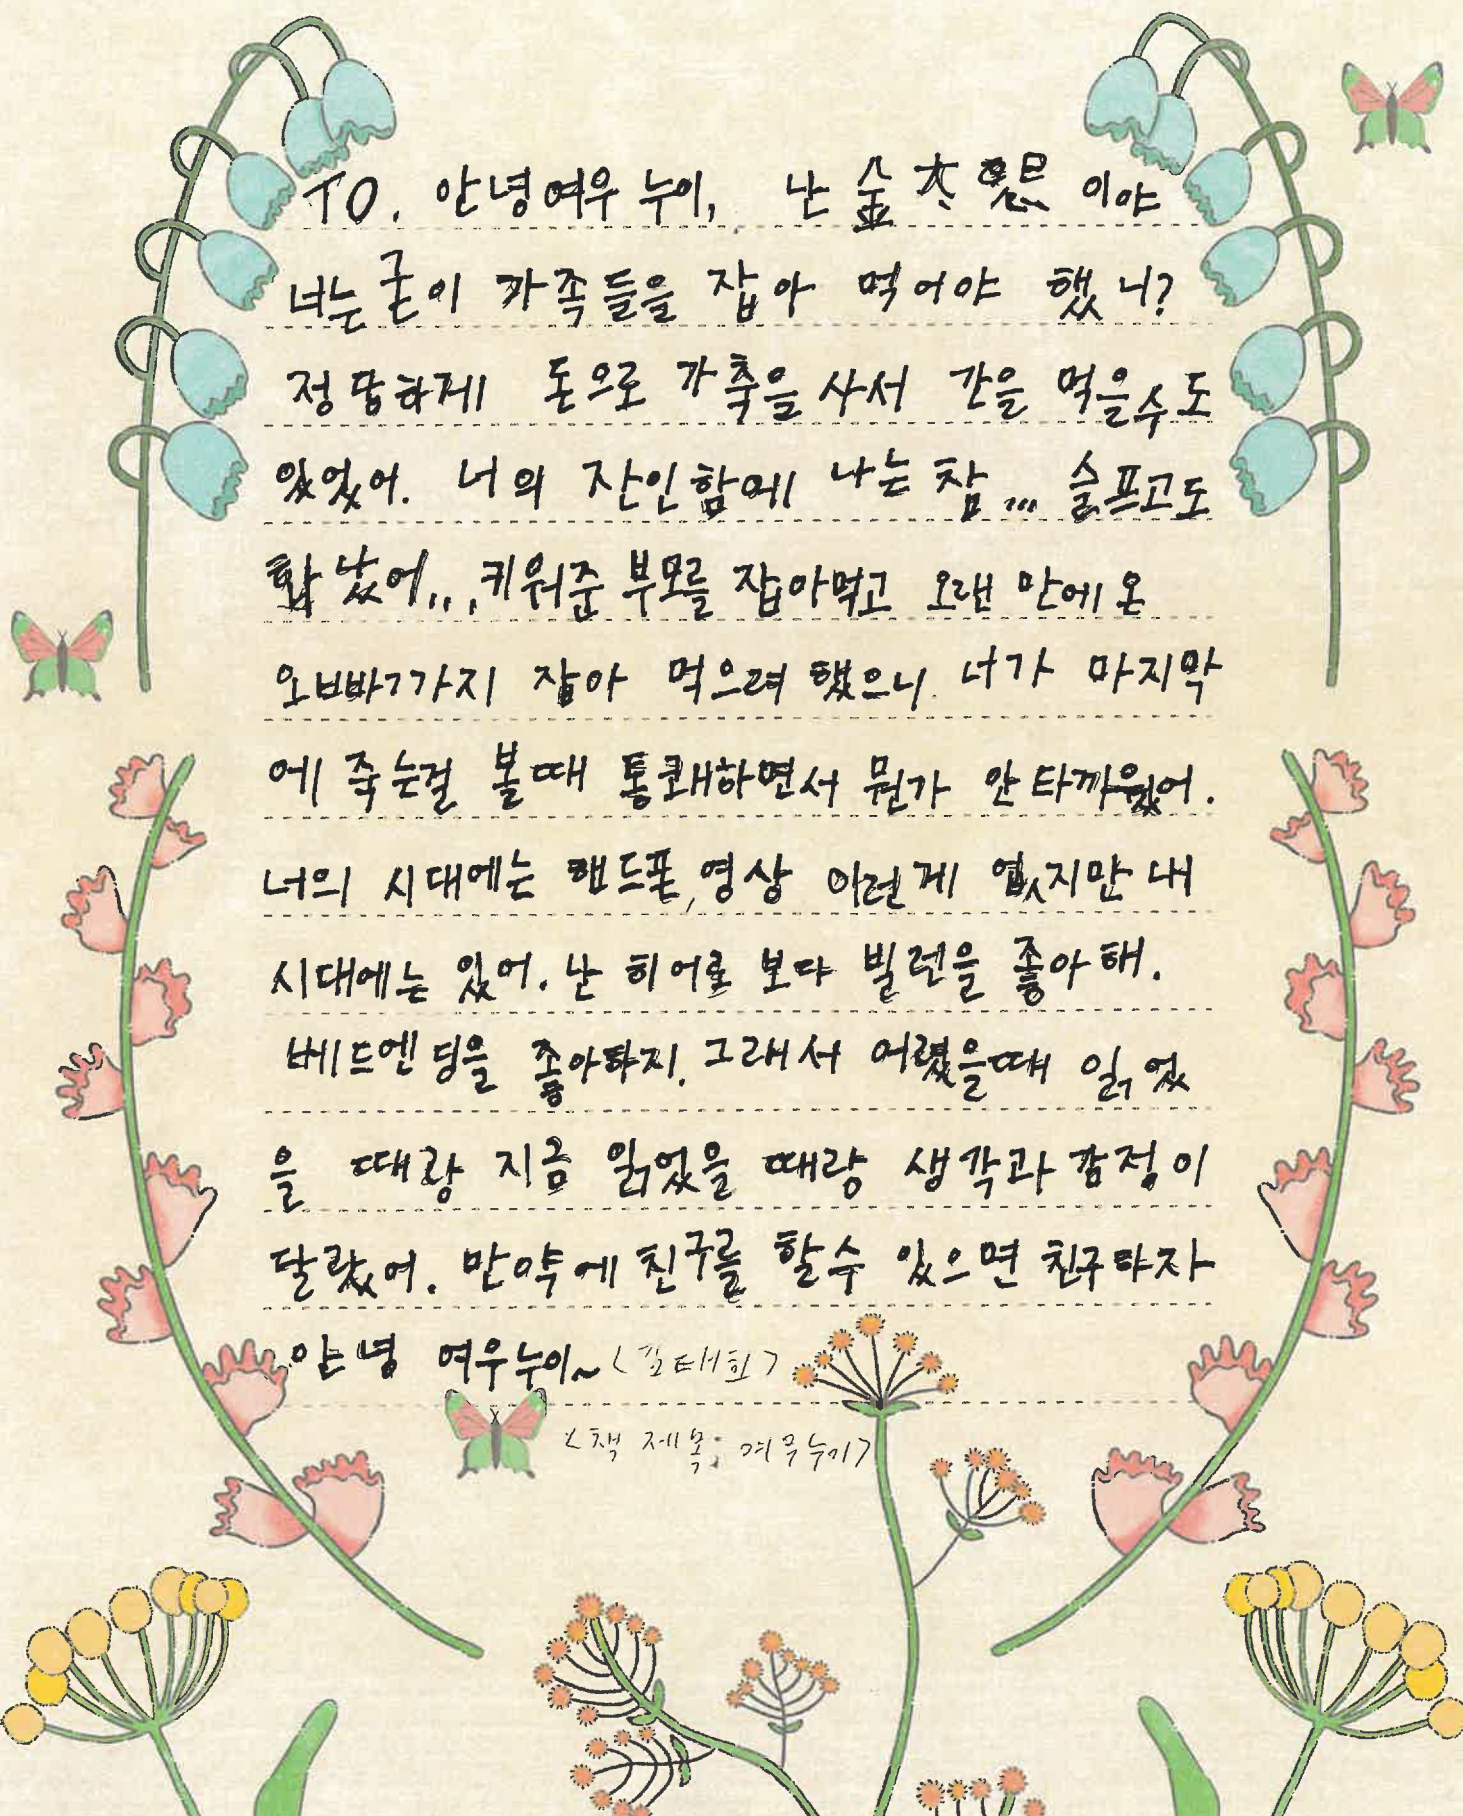 TO. 안녕 여우 누이, 난 金太 이야
너는 굳이 가족들을 잡아 먹어야 했니?
정답하게 돈으로 가축을 사서 간을 먹을수도
있었어. 너의 잔인함에 나는 참... 슬프고도
화 났어... 키워준 부모를 잡아먹고 오랜 만에 온
오빠까지 잡아 먹으려 했으니. 너가 마지막
에 죽는걸 볼때 통쾌하면서 뭔가 안타까웠어.
너의 시대에는 핸드폰, 영상 이런게 없지만 내
시대에는 있어. 난 히어로 보다 빌런을 좋아해.
베드엔딩을 좋아하지. 그래서 어렸을때 읽었
을 때랑 지금 읽었을 때랑 생각과 감정이
달랐어. 만약에 친구를 할수 있으면 친구하자
안녕 여우누이~ <김태희>
<책 제목: 여우누이>